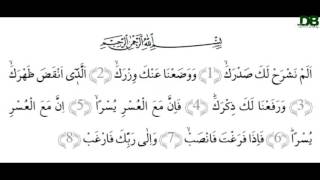 DB
بِسْمِ اللهِ الرَّحْمٰنِ الرَّحِيْمِ
اَلَمْ نَشْرَحْ لَكَ صَدْرَكَۙ ﴿1﴾ وَوَضَعْنَا عَنْكَ وِزْرَكَۙ ﴿2﴾ الَّذٖٓى اَنْقَضَ ظَهْرَكَۙ
﴿3﴾ وَرَفَعْنَا لَكَ ذِكْرَكَۜ ﴿4﴾ فَاِنَّ مَعَ الْعُسْرِ يُسْراًۙ ﴿5﴾ اِنَّ مَعَ الْعُسْرِ
يُسْراًۜ ﴿6﴾ فَاِذَا فَرَغْتَ فَانْصَبْۙ ﴿7﴾ وَاِلٰى رَبِّكَ فَارْغَبْ ﴿8﴾